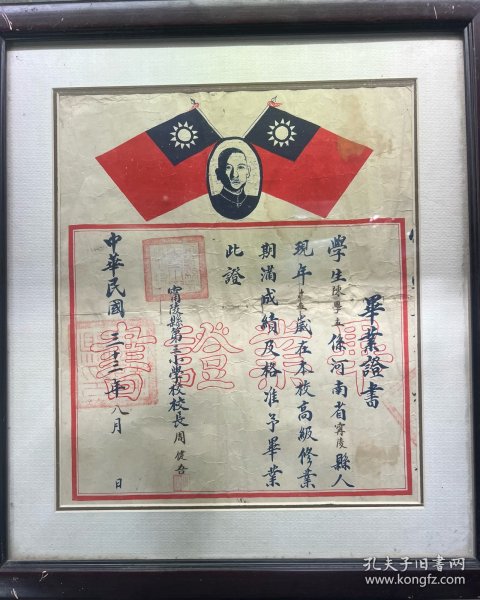 畢業證書
學生陳學立係河南省寧陵縣人
現年 歲在本校高級修業
期滿成績及格准予畢業
此證
甯陵縣第三小學校校長周健吾
中華民國三十二年八月 日
畢業證書
孔夫子旧书网
www.kongfz.com